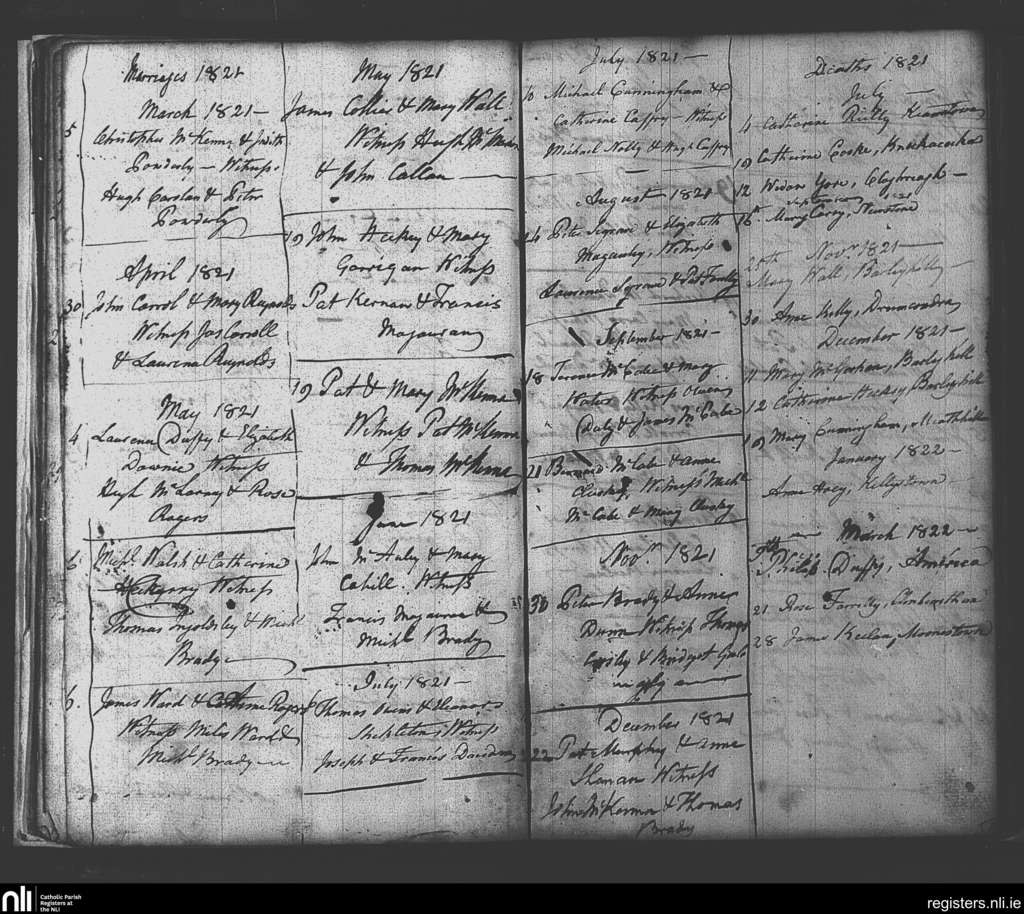 Marriages 1821
March 1821 —
5 Christopher McKenna & Judith
Powderly — Witness
Hugh Carolan & Peter
Powderly
April 1821
30 John Carrol & Mary Reynolds
Witness Jas Carroll
& Laurence Reynolds
May 1821
4 Laurence Duffy & Elizabeth
Downie Witness
Hugh & Rose
Rogers
6 Michl. Walsh & Catherine
Witness
Thomas & Michl
Brady
6. James Ward & Catherine Rogers
Witness Miles Ward &
Michl Brady
May 1821
James Collier & Mary Wall
Witness Hugh
& John Callan —
19 John Hickey & Mary
Garrigan Witness
Pat Kernan & Francis
Magauran
19 Pat & Mary McKenna
Witness Pat McKenna
& Thomas McKenna
June 1821
John McAuly & Mary
Cahill. Witness
Francis &
Michl Brady
July 1821 —
Thomas & Eleanor
Witness
Joseph & Francis
July 1821 —
10 Michael Cunningham &
Catherine Caffry — Witness
Michael Nolty & Hugh Caffry
August 1821
24 Peter & Elizabeth
Witness
Laurence & Pat
September 1821 —
18 Terence McCabe & Mary
Waters Witness Owen
Daly & James McCabe
21 Bernard McCabe & Anne
Clusky, Witness Michl
McCabe & Mary Clusky
Novr. 1821
30 Peter Brady & Anne
Dunn Witness Thomas
& Bridget
December 1821
22 Pat Murphy & Anne
Witness
John McKenna & Thomas
Brady
Deaths 1821
July —
4 Catharine Reilly
19 Catherine Cooke,
12 Widow Gore,
September 1821
16th Mary Carey, Newtown
Novr. 1821 —
20th Mary Wall, Barleyhill —
30 Anne Kelly, Drumcondra
December 1821 —
11 Mary McGeehan, Barleyhill
12 Catherine Hickey Barleyhill
19 Mary Cunningham,
January 1822 —
Anne Hoey, Kellystown
March 1822 —
9th Philip Duffy, America
21 Rose Farrelly,
28 James Keelan,
nli
Catholic Parish
Registers at
the NLI
registers.nli.ie